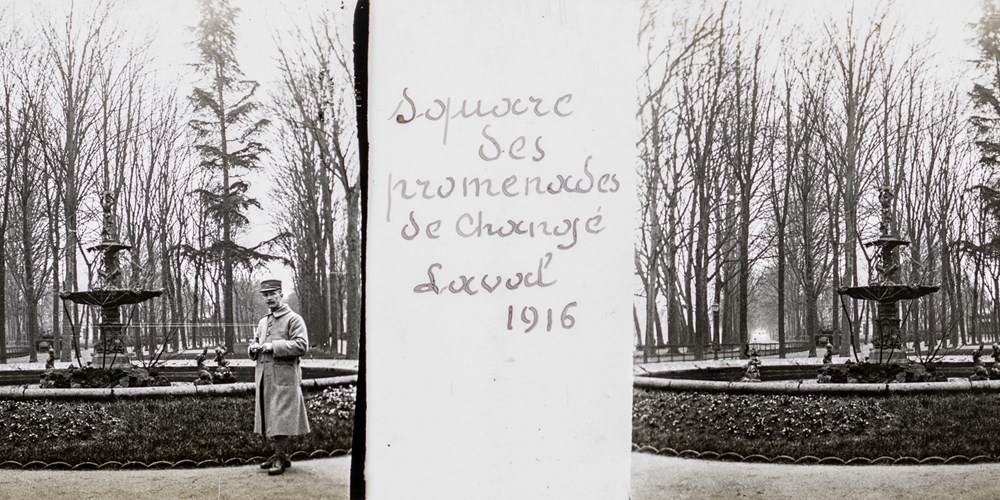 Square
des
promenades
de Changé
Laval
1916